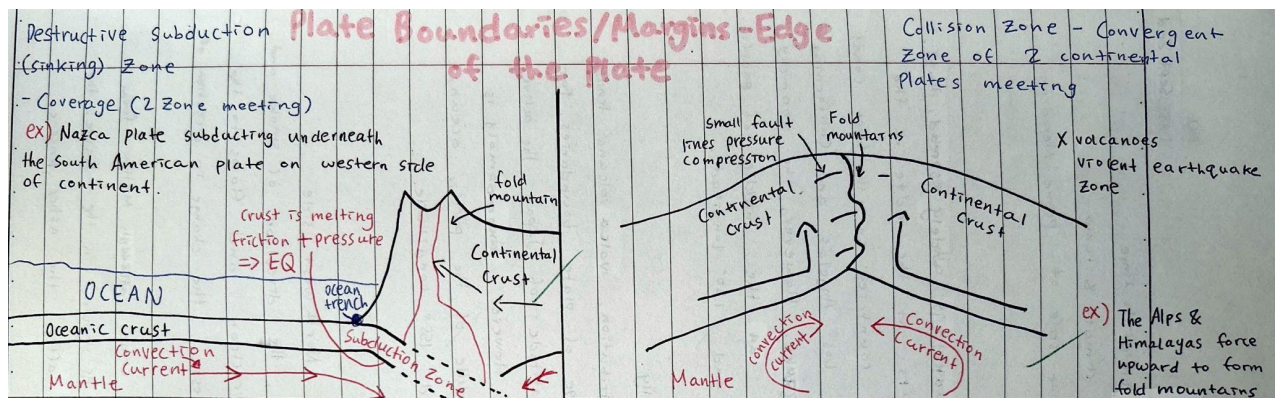 Plate Boundaries/Margins-Edge
of the Plate
Destructive subduction
(sinking) Zone
- Coverage (2 Zone meeting)
ex) Nazca plate subducting underneath
the South American plate on western side
of continent.
crust is melting
friction + pressure
=> EQ
fold
mountain
Continental
Crust
OCEAN
ocean
trench
Oceanic crust
Subduction Zone
Convection
Current
Mantle
Collision Zone - Convergent
Zone of 2 continental
Plates meeting
small fault
lines pressure
compression
Fold
mountains
X volcanoes
violent earthquake
zone
Continental
Crust
Continental
Crust
convection
current
Convection
Current
Mantle
ex) The Alps &
Himalayas force
upward to form
fold mountains